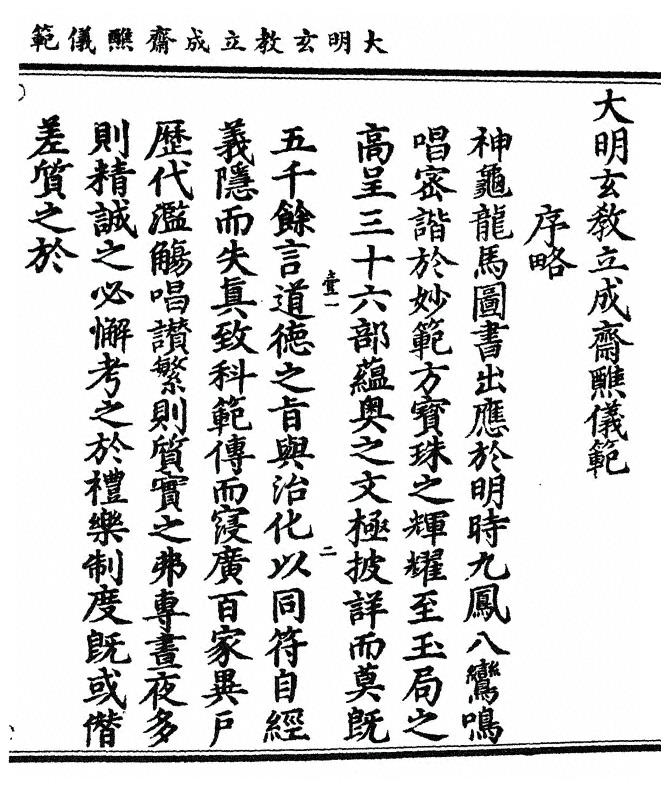 大明玄教立成齋醮儀範
大明玄教立成齋醮儀範
序略
神龜龍馬圖書出應於明時九鳳八鸞鳴
唱密諧於妙範方寶珠之輝耀至玉局之
高呈三十六部蘊奥之文極披詳而莫既
壹一
二
五千餘言道德之旨與治化以同符自經
義隱而失真致科範傳而寖廣百家異戶
歷代濫觴唱讃繁則質實之弗專晝夜多
則精誠之必懈考之於禮樂制度既或僭
差質之於